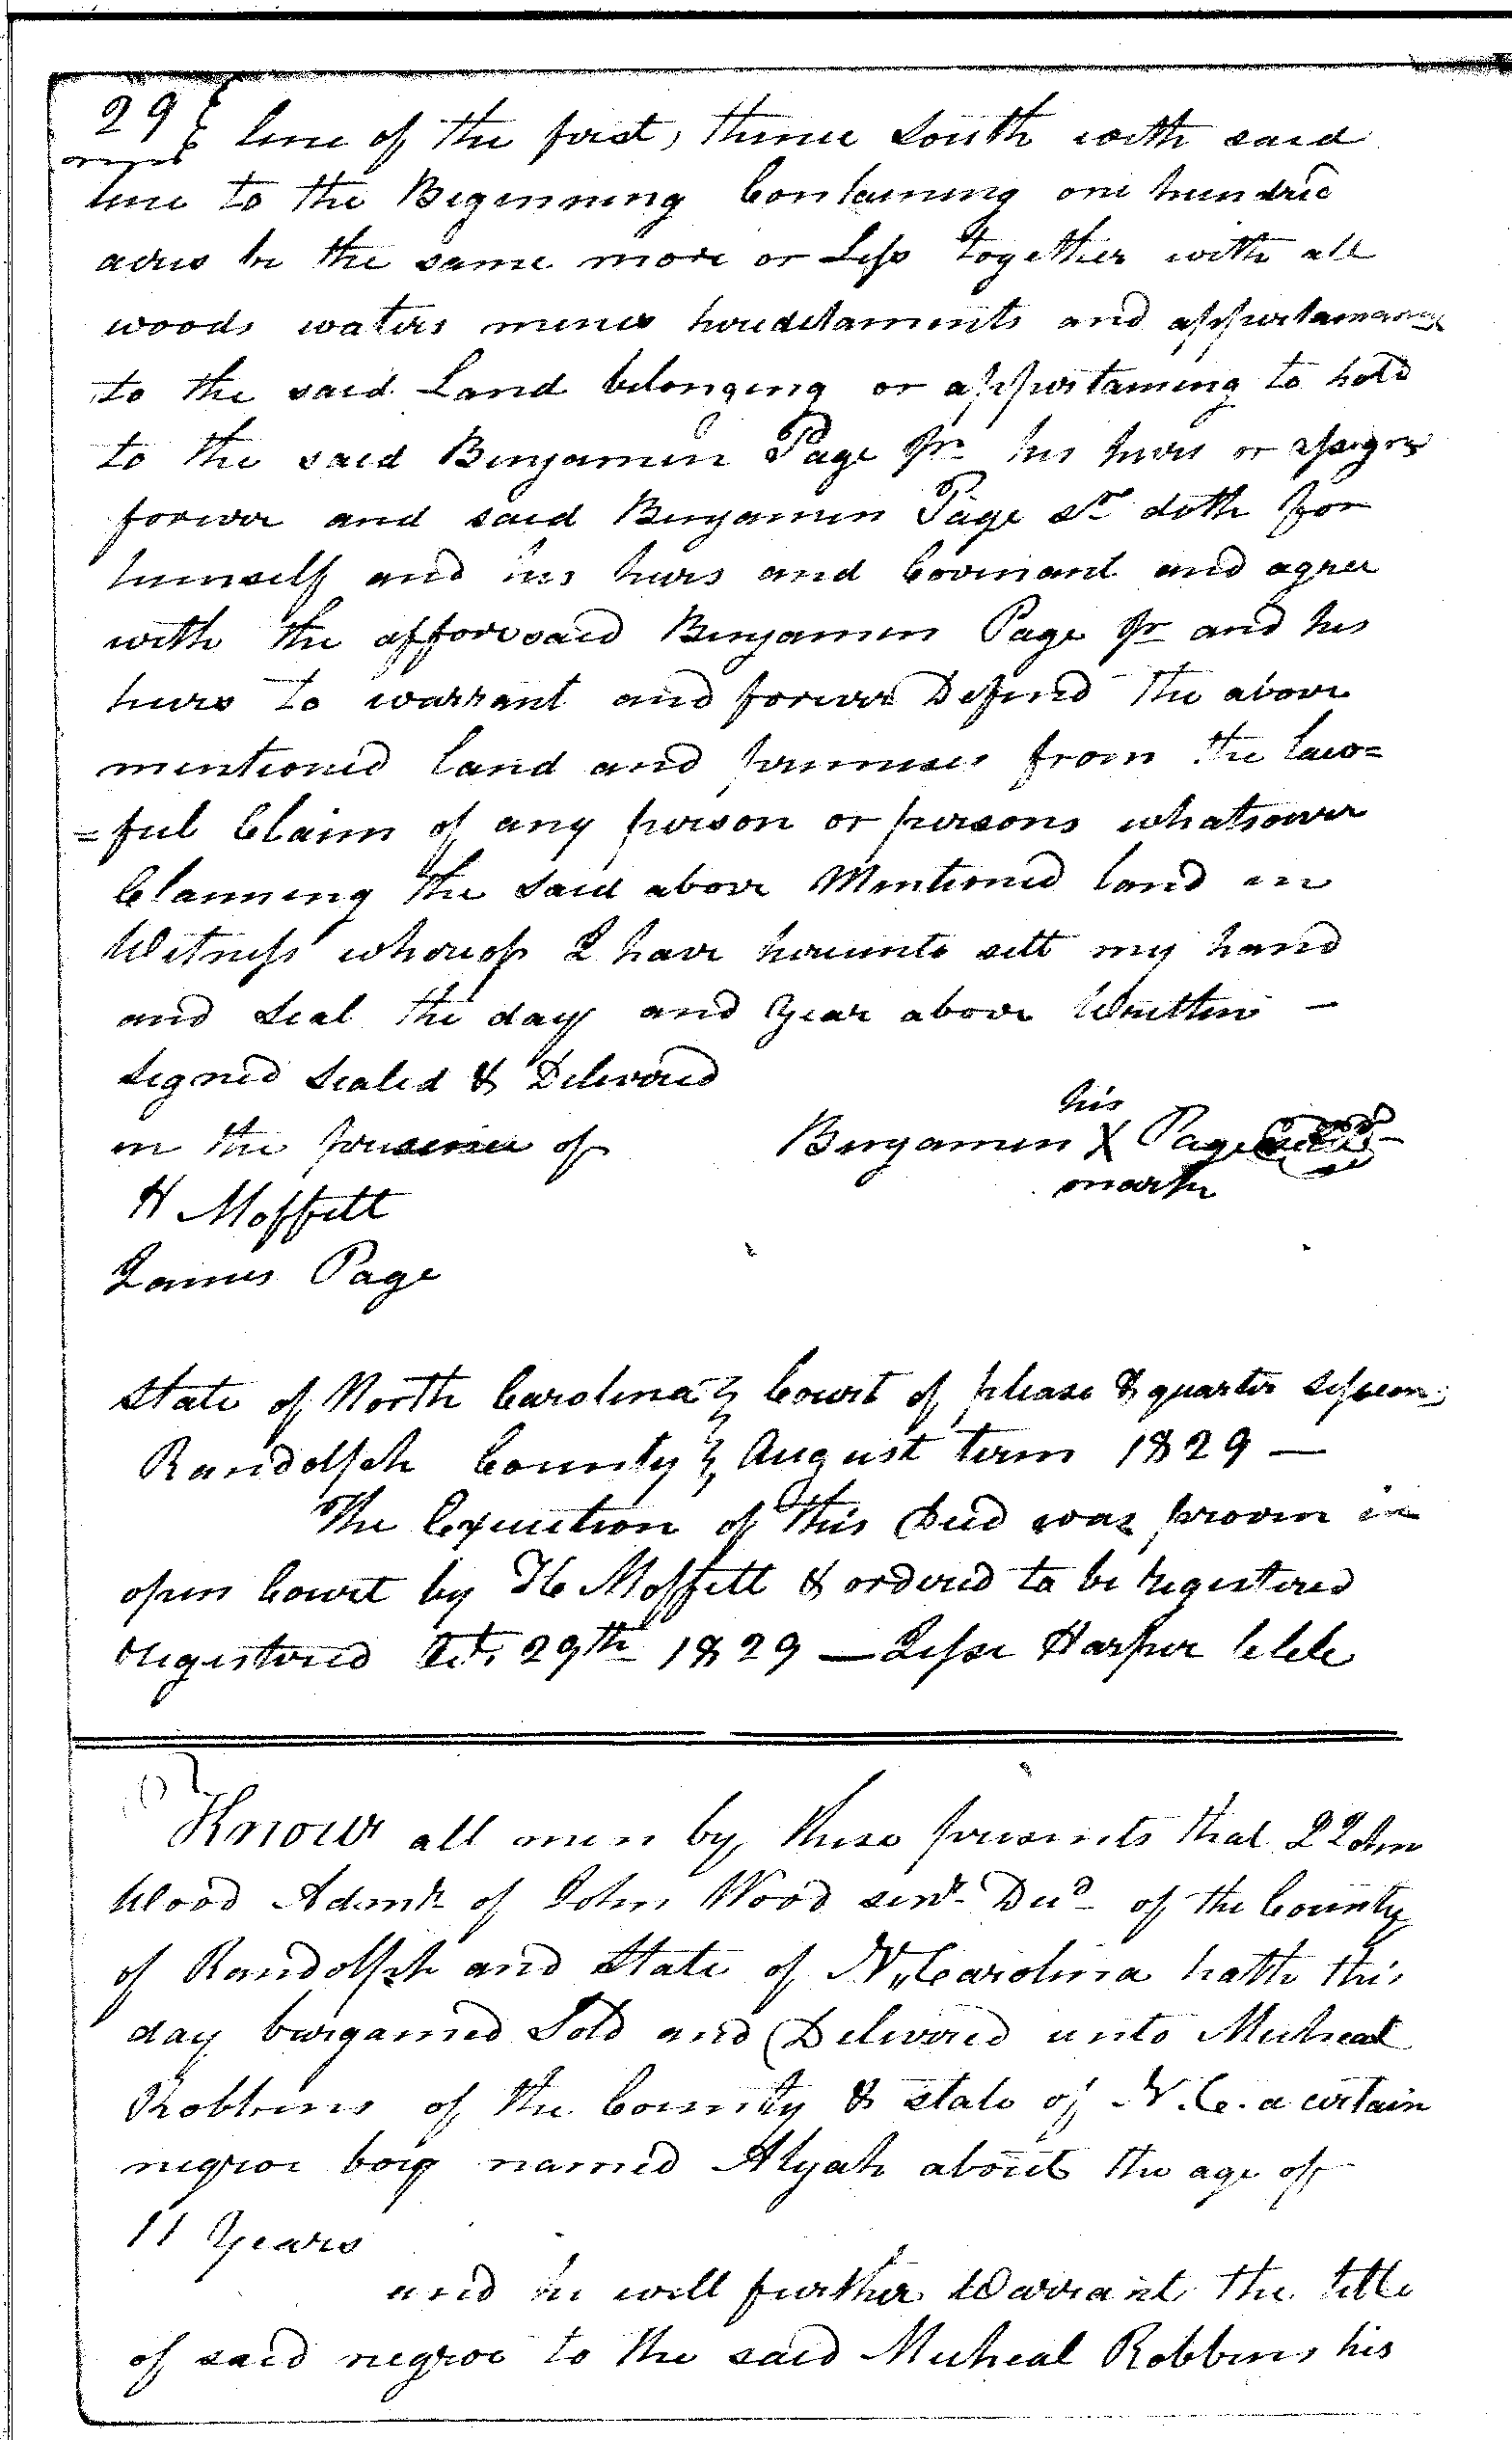 29
line of the first, thence South with said
line to the Beginning Containing one hundred
acres be the same more or Less together with all
woods waters mines heredetaments and appurtanances
to the said Land belonging or appertaining to hold
to the said Benjamin Page Jr his heirs or assigns
forever and said Benjamin Page Sr doth for
himself and his heirs and Covenant and agree
with the afforesaid Benjamin Page Jr and his
heirs to warrant and forever Defend the above
mentioned land and premises from the law=
=ful Claim of any person or persons whatsoever
Claiming the said above Mentioned land in
Witness whereof I have hereunto sett my hand
and Seal the day and Year above Written —
Signed Sealed & Delivered
in the presence of
his
Benjamin X Page
mark
H Moffett
James Page
State of North Carolina } Court of please & quarter session
Randolph County } August term 1829 —
The Execution of this Deed was proven in
open Court by H Moffett & ordered to be registered
registered Oct. 29th 1829 — Jesse Harper Clk
Know all men by these presents that I John
Wood Admr of John Wood senr Decd of the County
of Randolph and State of N,,Carolina hath this
day bargained Sold and Delivered unto Micheal
Robbins of the County & state of N.C. a certain
negroe boy named Alyah about the age of
11 Years
and he will further Warrant the title
of said negroe to the said Micheal Robbins his